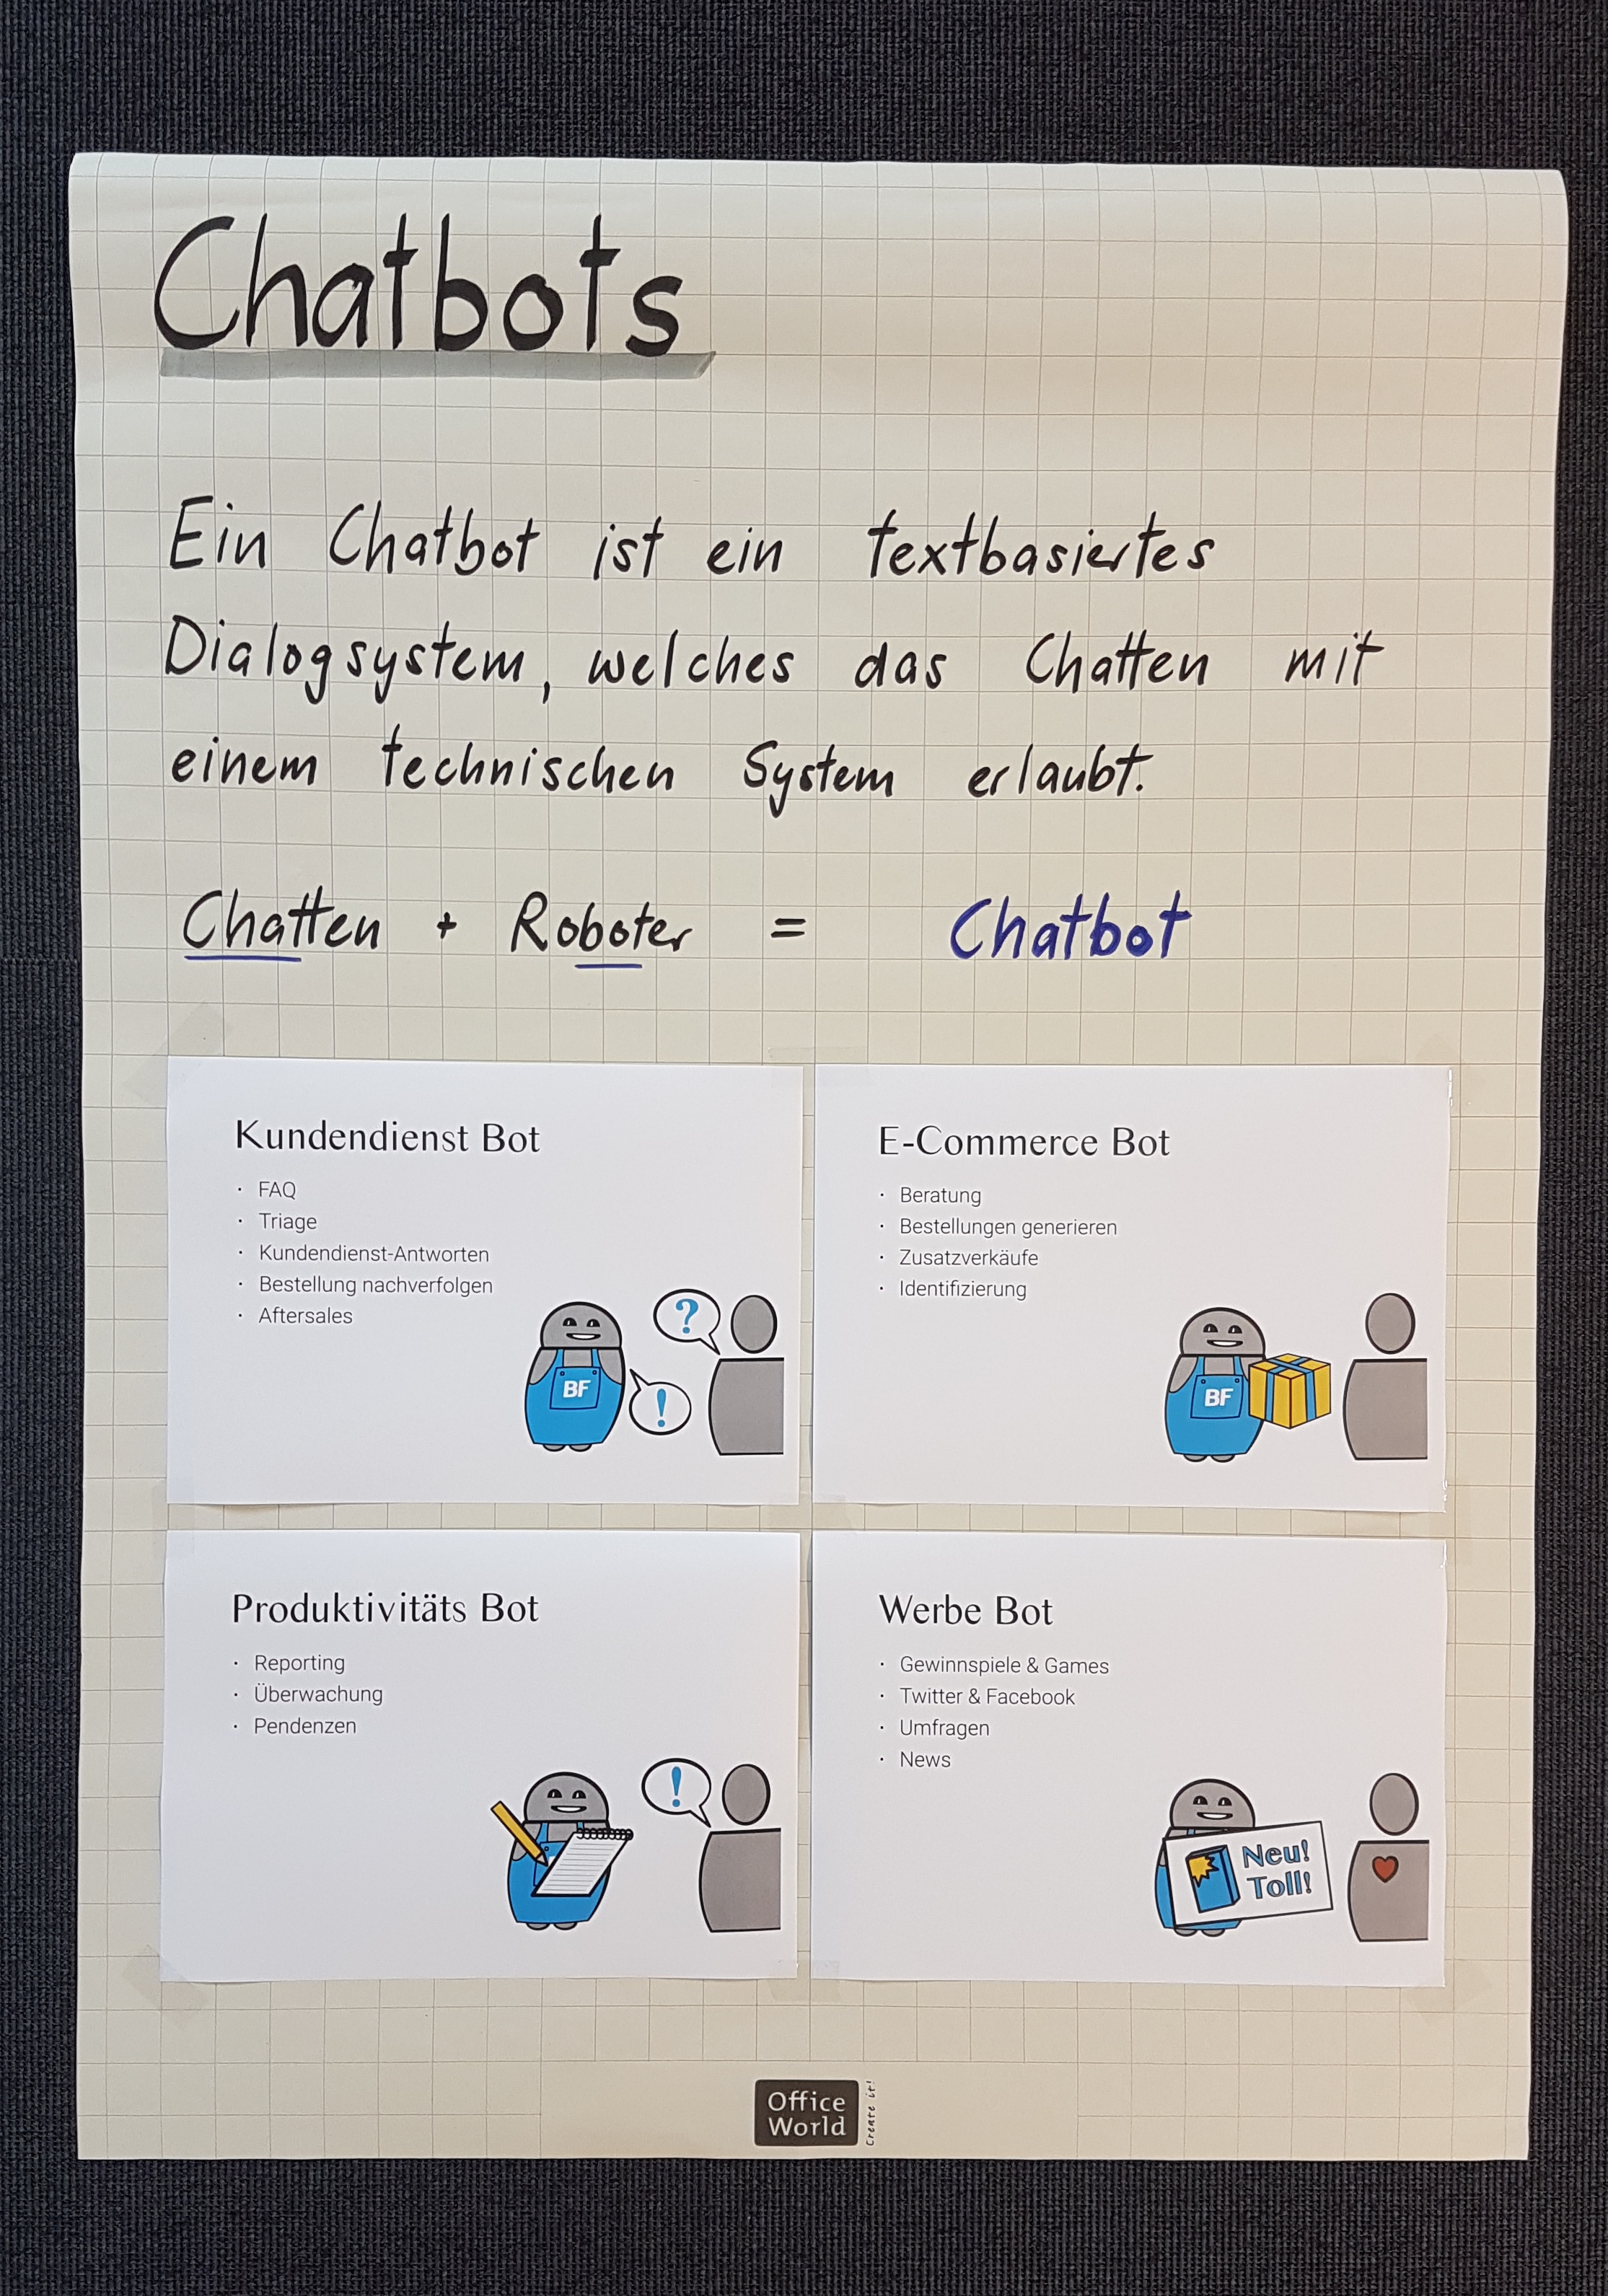 Chatbots
Ein Chatbot ist ein textbasiertes
Dialogsystem, welches das Chatten mit
einem technischen System erlaubt.
Chatten + Roboter = Chatbot
Kundendienst Bot
· FAQ
· Triage
· Kundendienst-Antworten
· Bestellung nachverfolgen
· Aftersales
?
!
BF
E-Commerce Bot
· Beratung
· Bestellungen generieren
· Zusatzverkäufe
· Identifizierung
BF
Produktivitäts Bot
· Reporting
· Überwachung
· Pendenzen
!
Werbe Bot
· Gewinnspiele & Games
· Twitter & Facebook
· Umfragen
· News
Neu!
Toll!
Office
World
Create it!